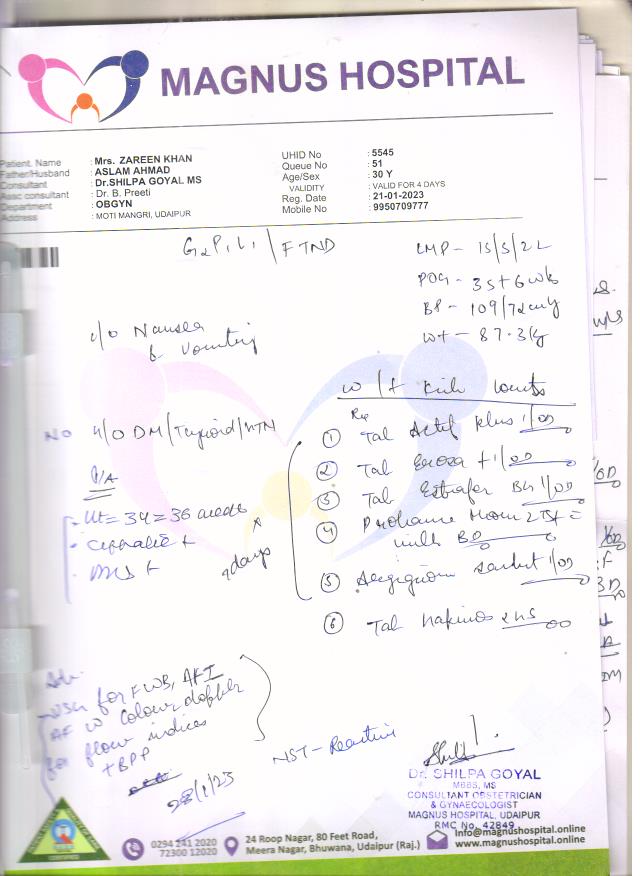 MAGNUS HOSPITAL
Patient. Name : Mrs. ZAREEN KHAN
Father/Husband : ASLAM AHMAD
Consultant : Dr.SHILPA GOYAL MS
Assc consultant : Dr. B. Preeti
Department : OBGYN
Address : MOTI MANGRI, UDAIPUR
UHID No : 5545
Queue No : 51
Age/Sex : 30 Y
VALIDITY : VALID FOR 4 DAYS
Reg. Date : 21-01-2023
Mobile No : 9950709777
G2P1L1 / FTND
LMP - 15/5/22
POG - 35+6 wks
BP - 109/72
Wt - 87.3 kg
c/o Nausea
& Vomiting
NO H/O DM/Thyroid/HTN
P/A
Ut = 34 = 36 weeks
Cephalic +
FHS +
7 days
① Tab Plus 1/OD
② Tab 1/OD
③ Tab 1/OD
④ 2 TSF =
milk BD
⑤ sachet 1/OD
⑥ Tab
Adv
USG for FWB, AFI
AF w Colour doppler
for flow indices
+ BPP
28/1/23
NST - Reactive
Dr. SHILPA GOYAL
MBBS, MS
CONSULTANT OBSTETRICIAN
& GYNAECOLOGIST
MAGNUS HOSPITAL, UDAIPUR
RMC No. 42849
0294 241 2020
72300 12020
24 Roop Nagar, 80 Feet Road,
Meera Nagar, Bhuwana, Udaipur (Raj.)
Info@magnushospital.online
www.magnushospital.online